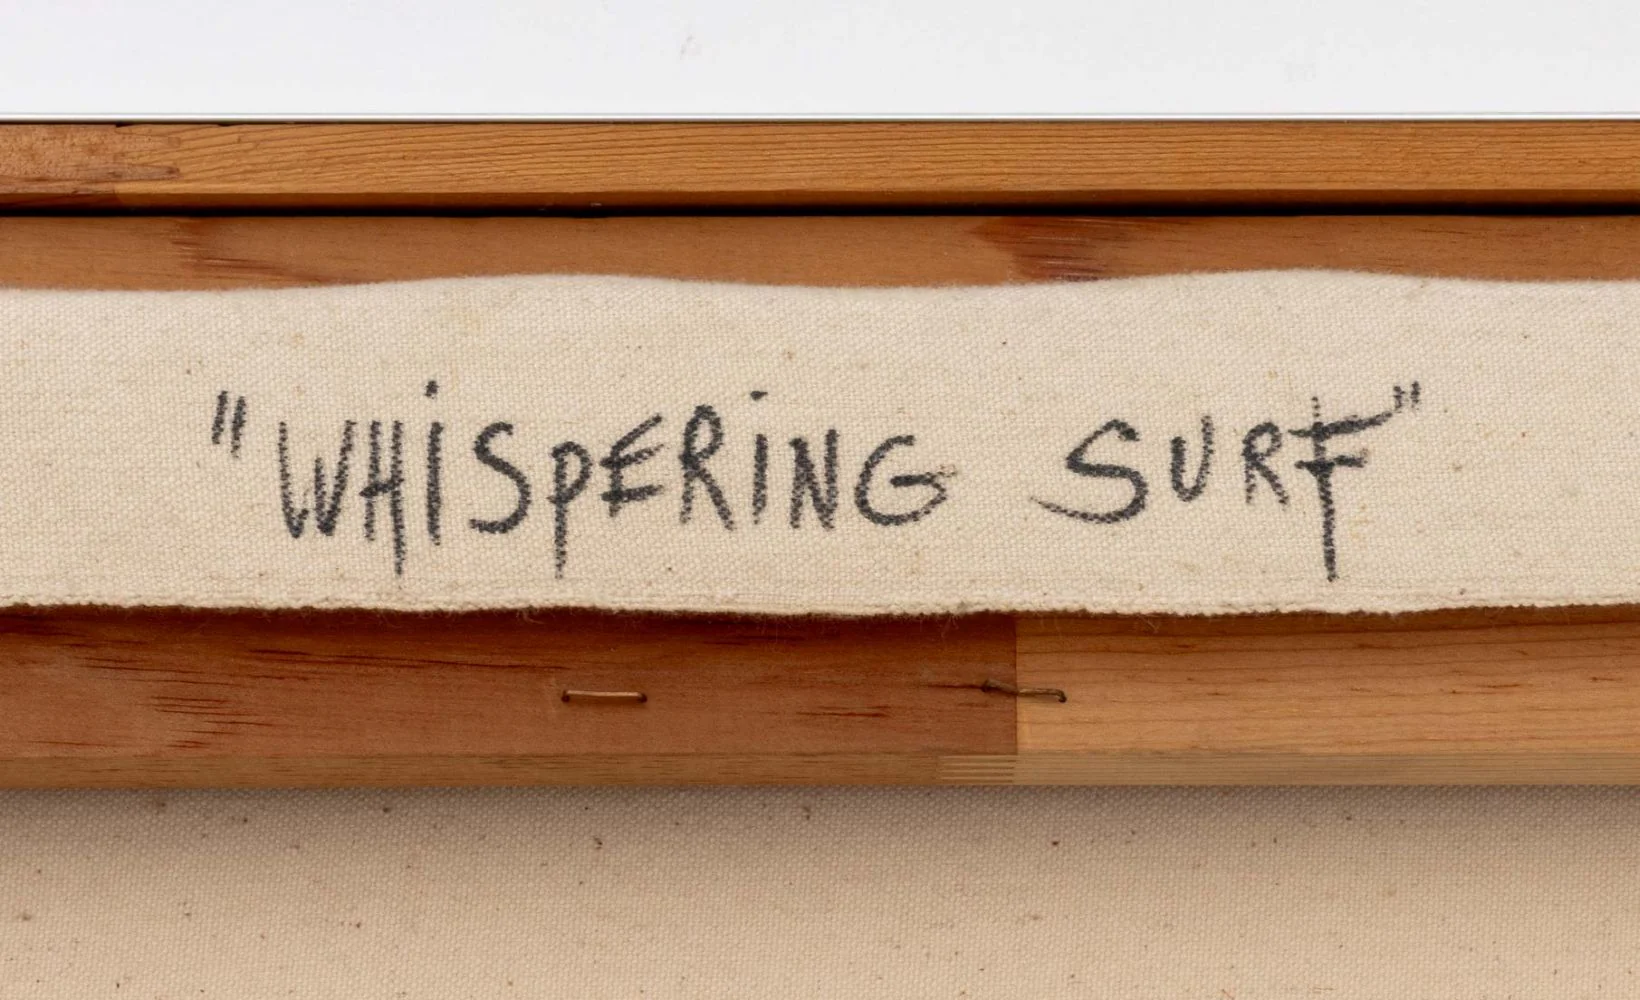 "WHiSPERiNG SURF"